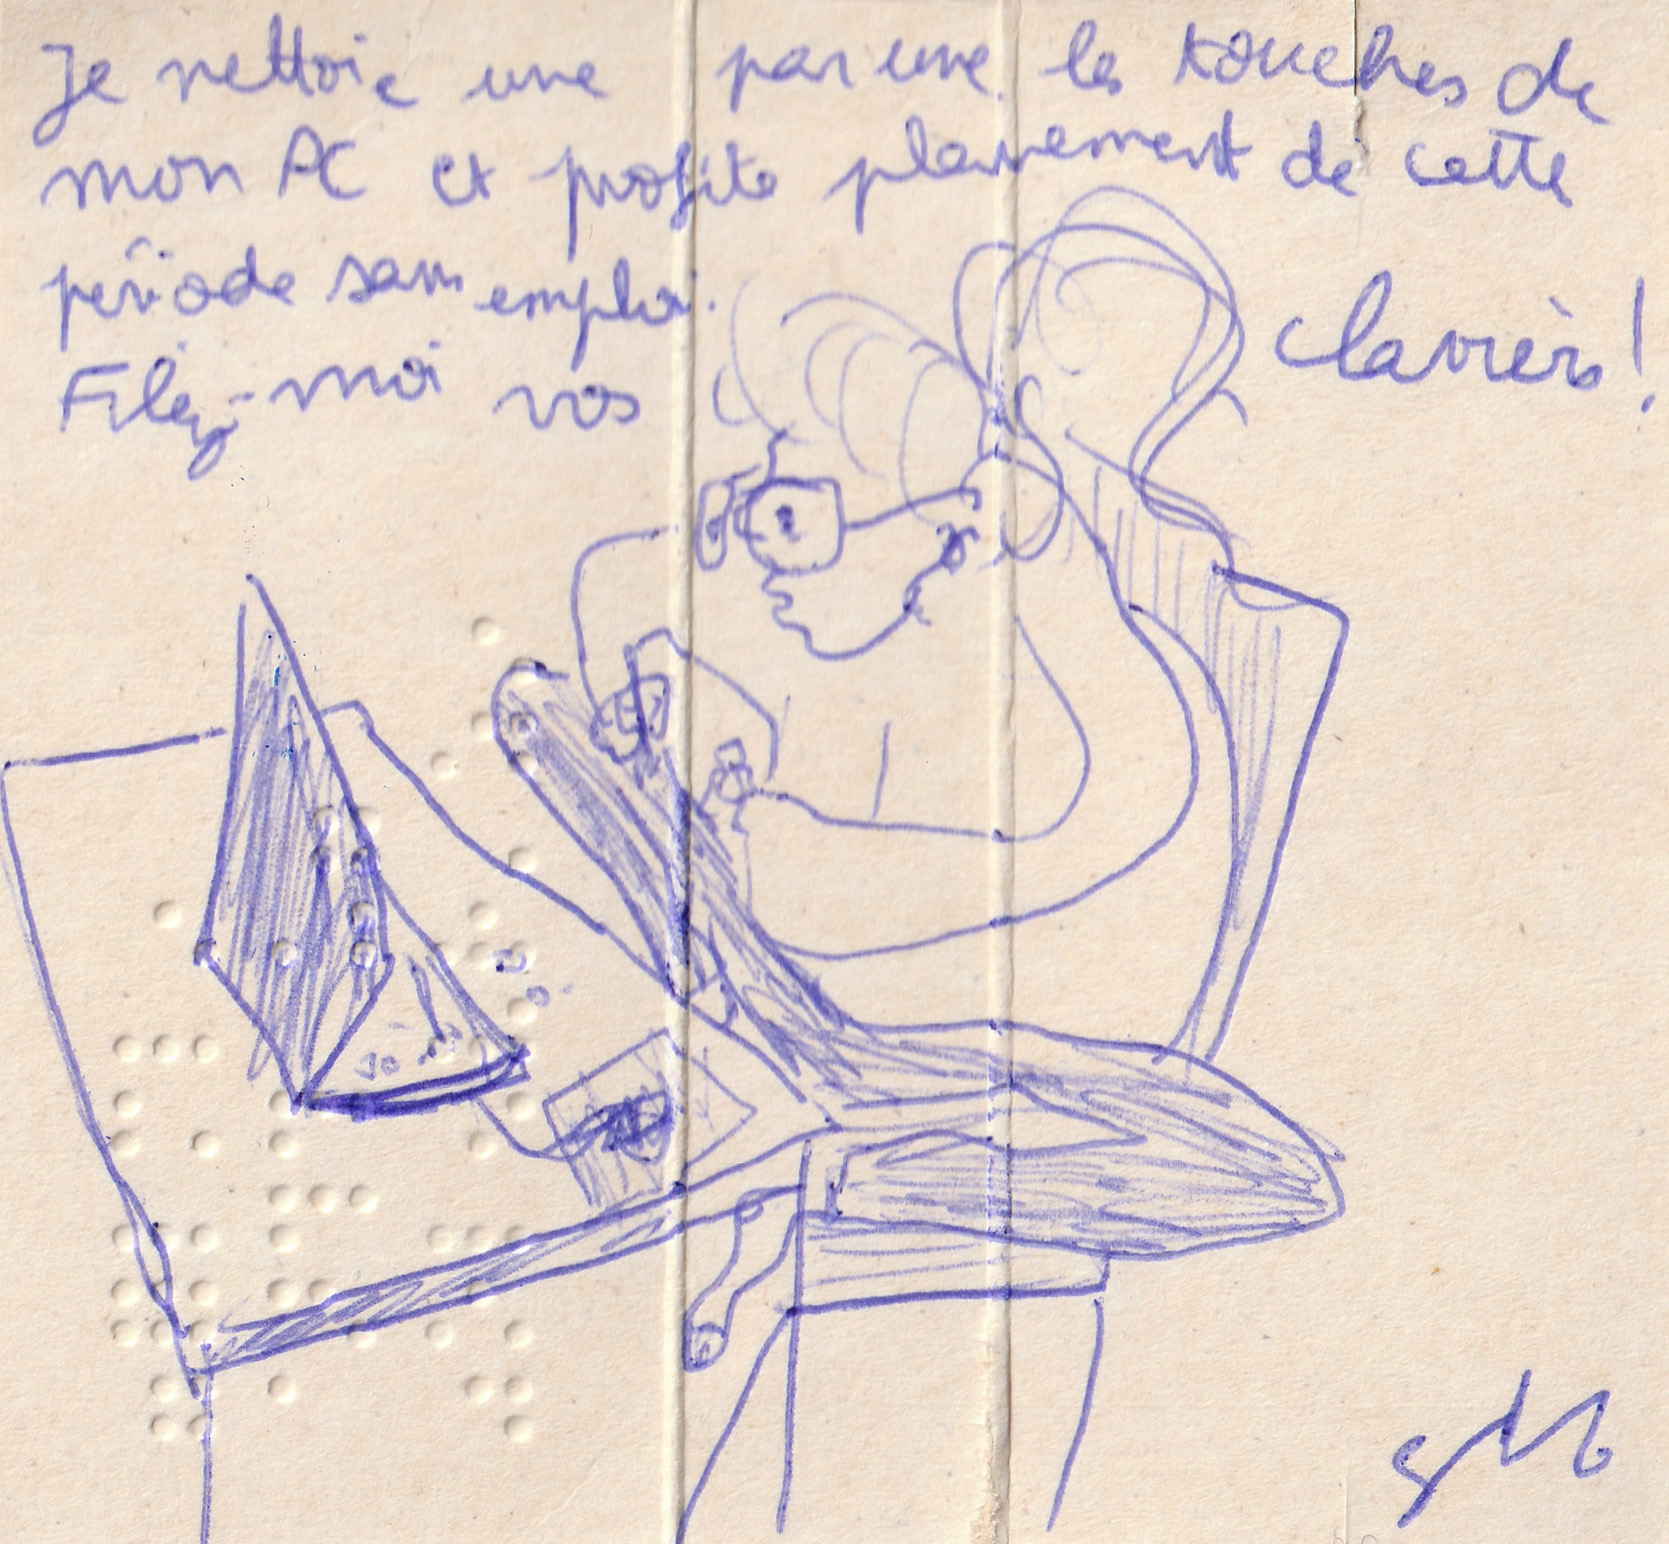 Je nettoie une par une les touches de
mon PC et profite pleinement de cette
période sans emploi.
Filez-moi vos claviers !